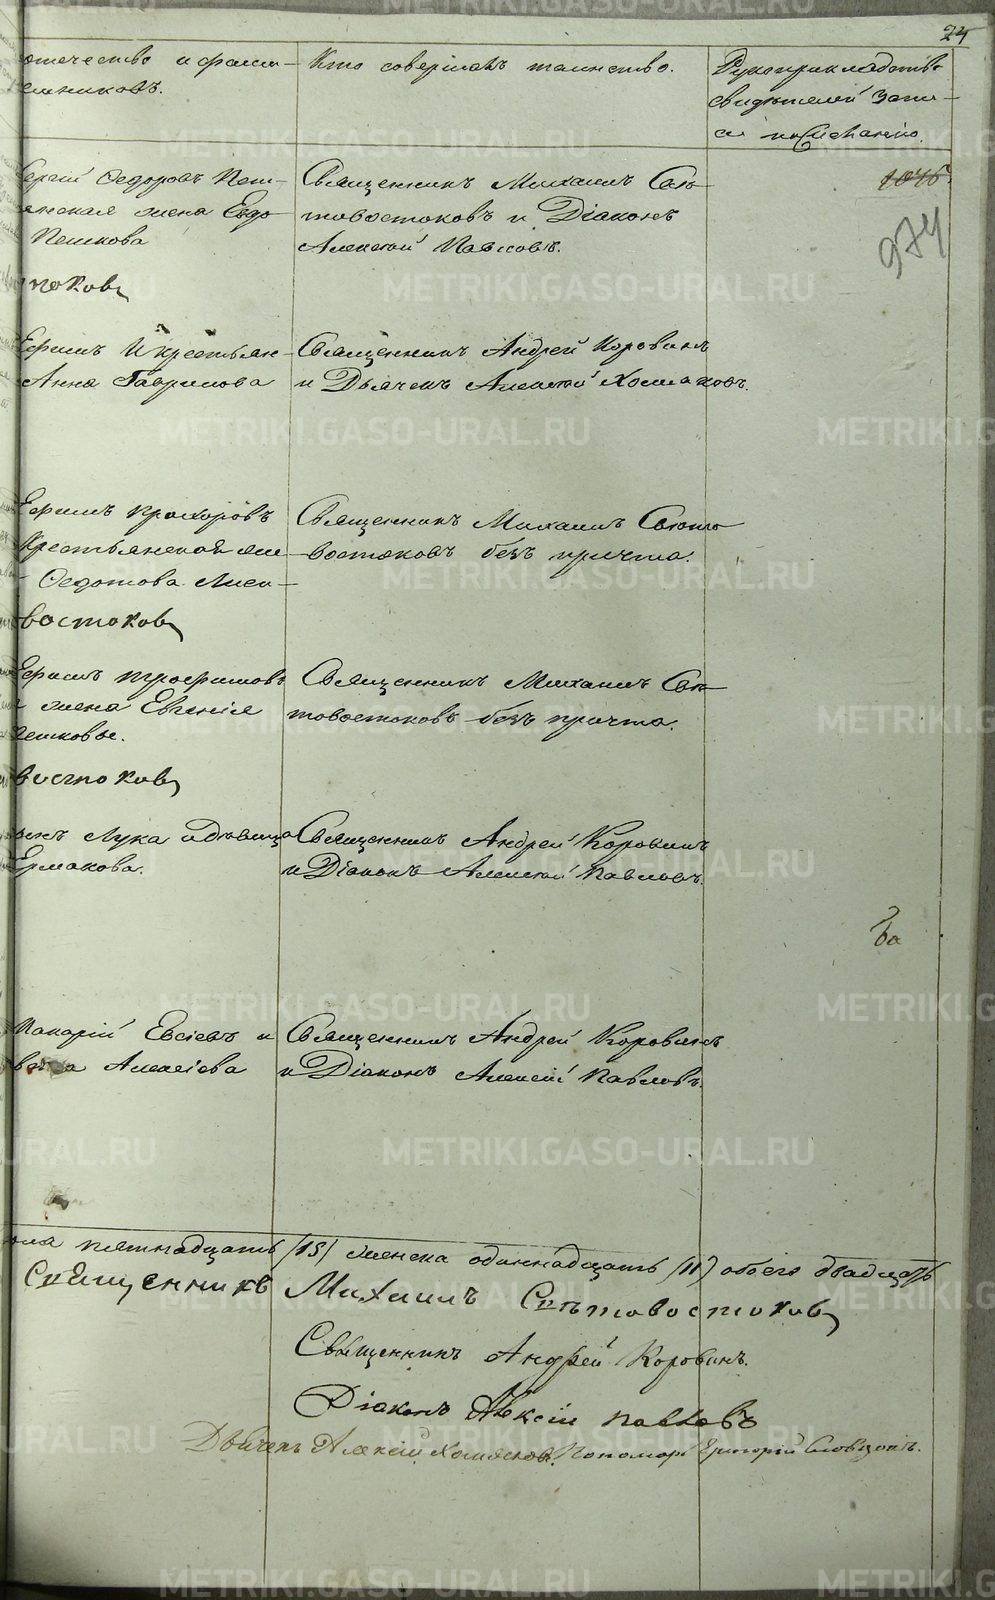 24
отечество и фами-
емниковъ.
Кто совершалъ таинство.
Рукоприкладство
свидѣтелей запи-
си по желанію.
Сергій Ѳедоровъ Пеш-
янская жена Евдо
Пешкова
Священникъ Михаилъ Свѣ-
товостоковъ и Діаконъ
Алексѣй Павловъ.
1046
974
токовъ
Ефимъ И крестьян-
Анна Гаврилова
Священникъ Андрей Коровинъ
и Дьячекъ Алексѣй Хомяковъ.
Ефимъ Прохоровъ
Крестьянская же-
Ѳедотова
Священникъ Михаилъ Свѣто
востоковъ безъ причта.
востоковъ
Ефимъ Трофимовъ
жена Евгенія
Пешковы.
Священникъ Михаилъ Свѣ-
товостоковъ безъ причта.
востоковъ
Лука и дѣвица
Ермакова.
Священникъ Андрей Коровинъ
и Діаконъ Алексѣй Павловъ.
Макарій Евсіевъ и
Алексіева
Священникъ Андрей Коровинъ
и Діаконъ Алексѣй Павловъ.
пятнадцать (15) женска одиннадцать (11) обоего двадцать
Священникъ Михаилъ Свѣтовостоковъ
Священникъ Андрей Коровинъ.
Діаконъ Алексій Павловъ
Дьячекъ Алексій Хомяковъ. Пономарь Григорій Словцовъ.
METRIKI.GASO-URAL.RU